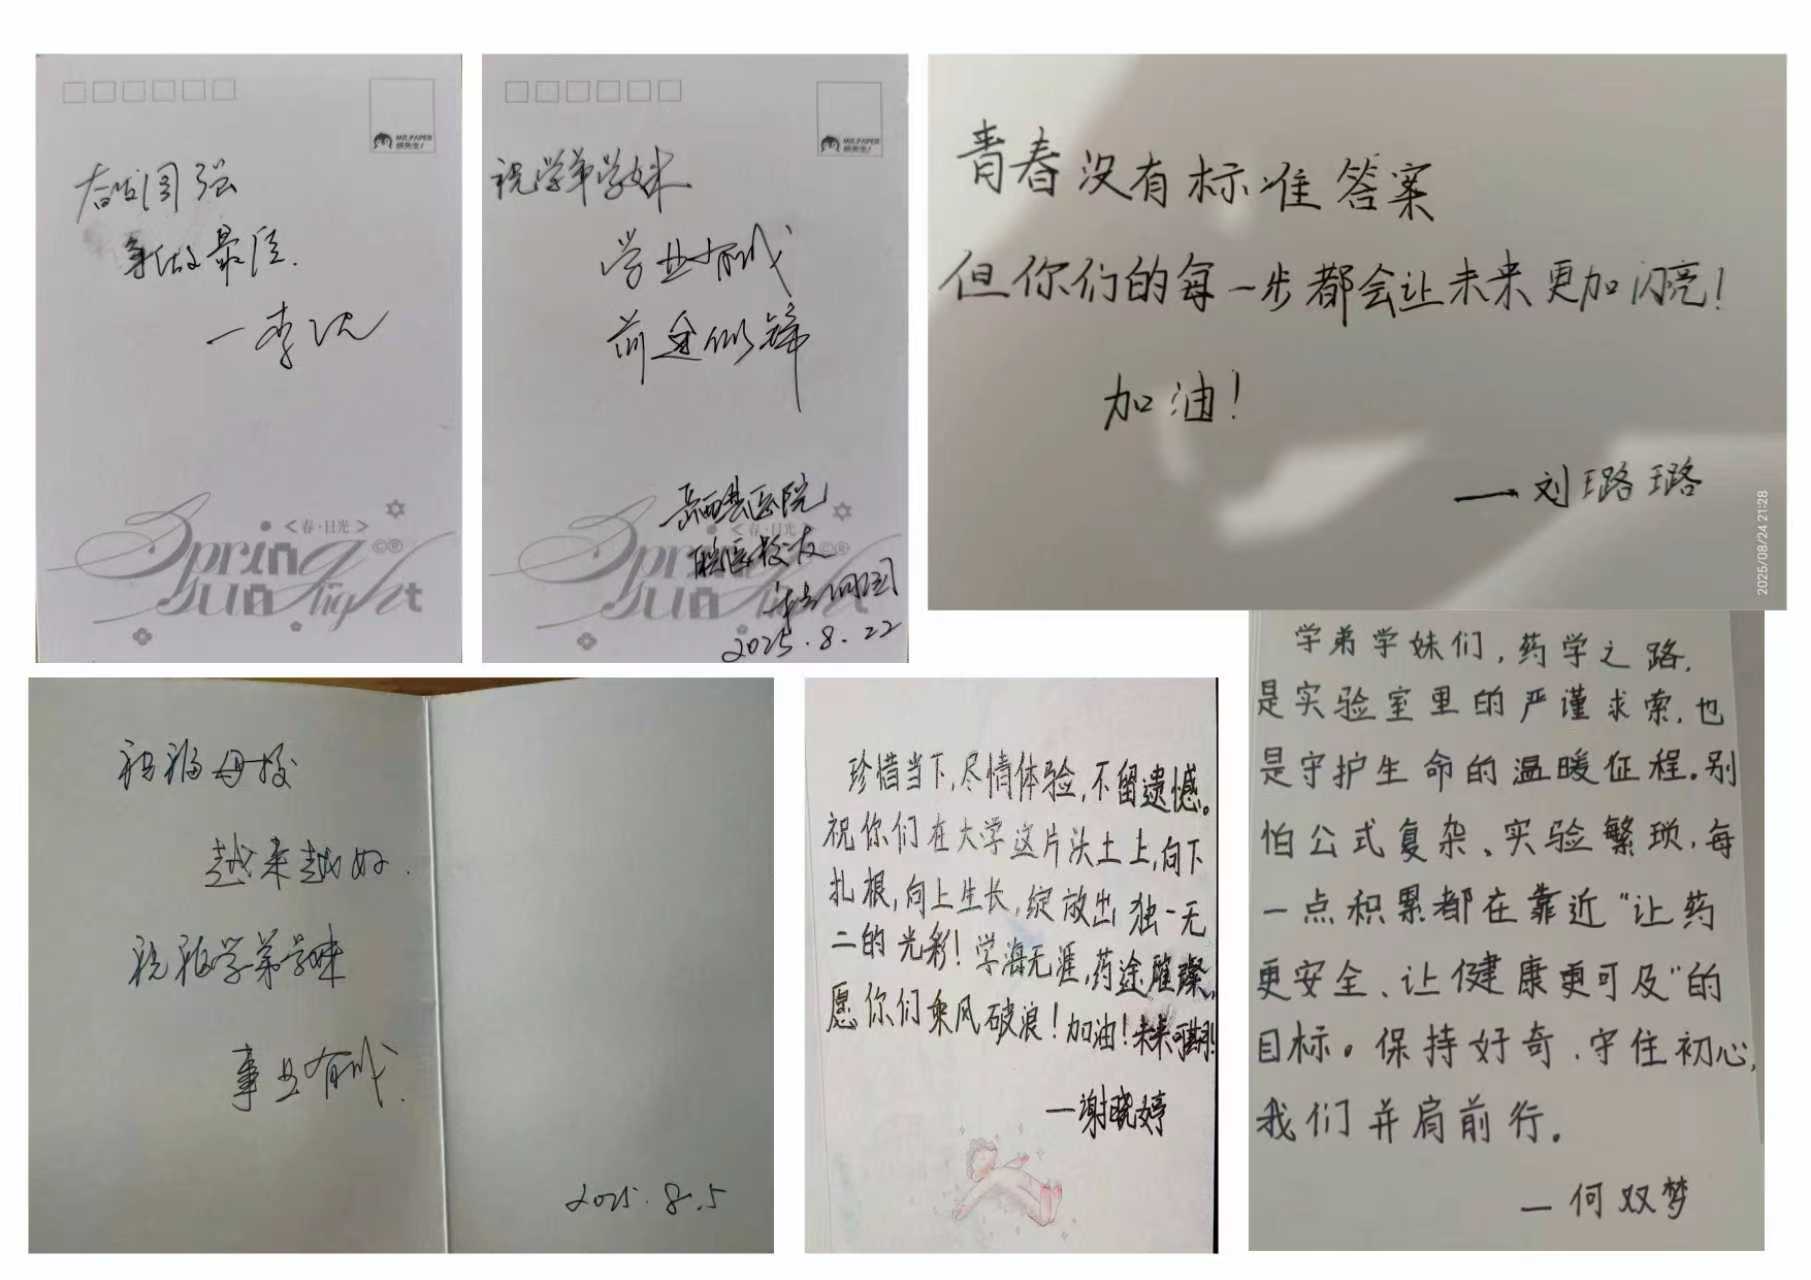 MR.PAPER
纸先生!
奋发图强
争做最佳.
一李沉
<春·日光>
Spring
Sunlight
MR.PAPER
纸先生!
祝学弟学妹
学业有成
前途似锦
岳西县医院
皖医校友
2025.8.22
<春·日光>
Spring
Sunlight
青春没有标准答案
但你们的每一步都会让未来更加闪亮!
加油!
——刘璐璐
2025/08/24 21:28
祝福母校
越来越好.
祝福学弟学妹
事业有成.
2025.8.5
珍惜当下,尽情体验,不留遗憾。
祝你们在大学这片沃土上,向下
扎根,向上生长,绽放出独一无
二的光彩!学海无涯,药途璀璨,
愿你们乘风破浪!加油!未来可期!
—谢晓婷
学弟学妹们,药学之路,
是实验室里的严谨求索,也
是守护生命的温暖征程。别
怕公式复杂、实验繁琐,每
一点积累都在靠近“让药
更安全、让健康更可及”的
目标。保持好奇、守住初心,
我们并肩前行。
—何双梦